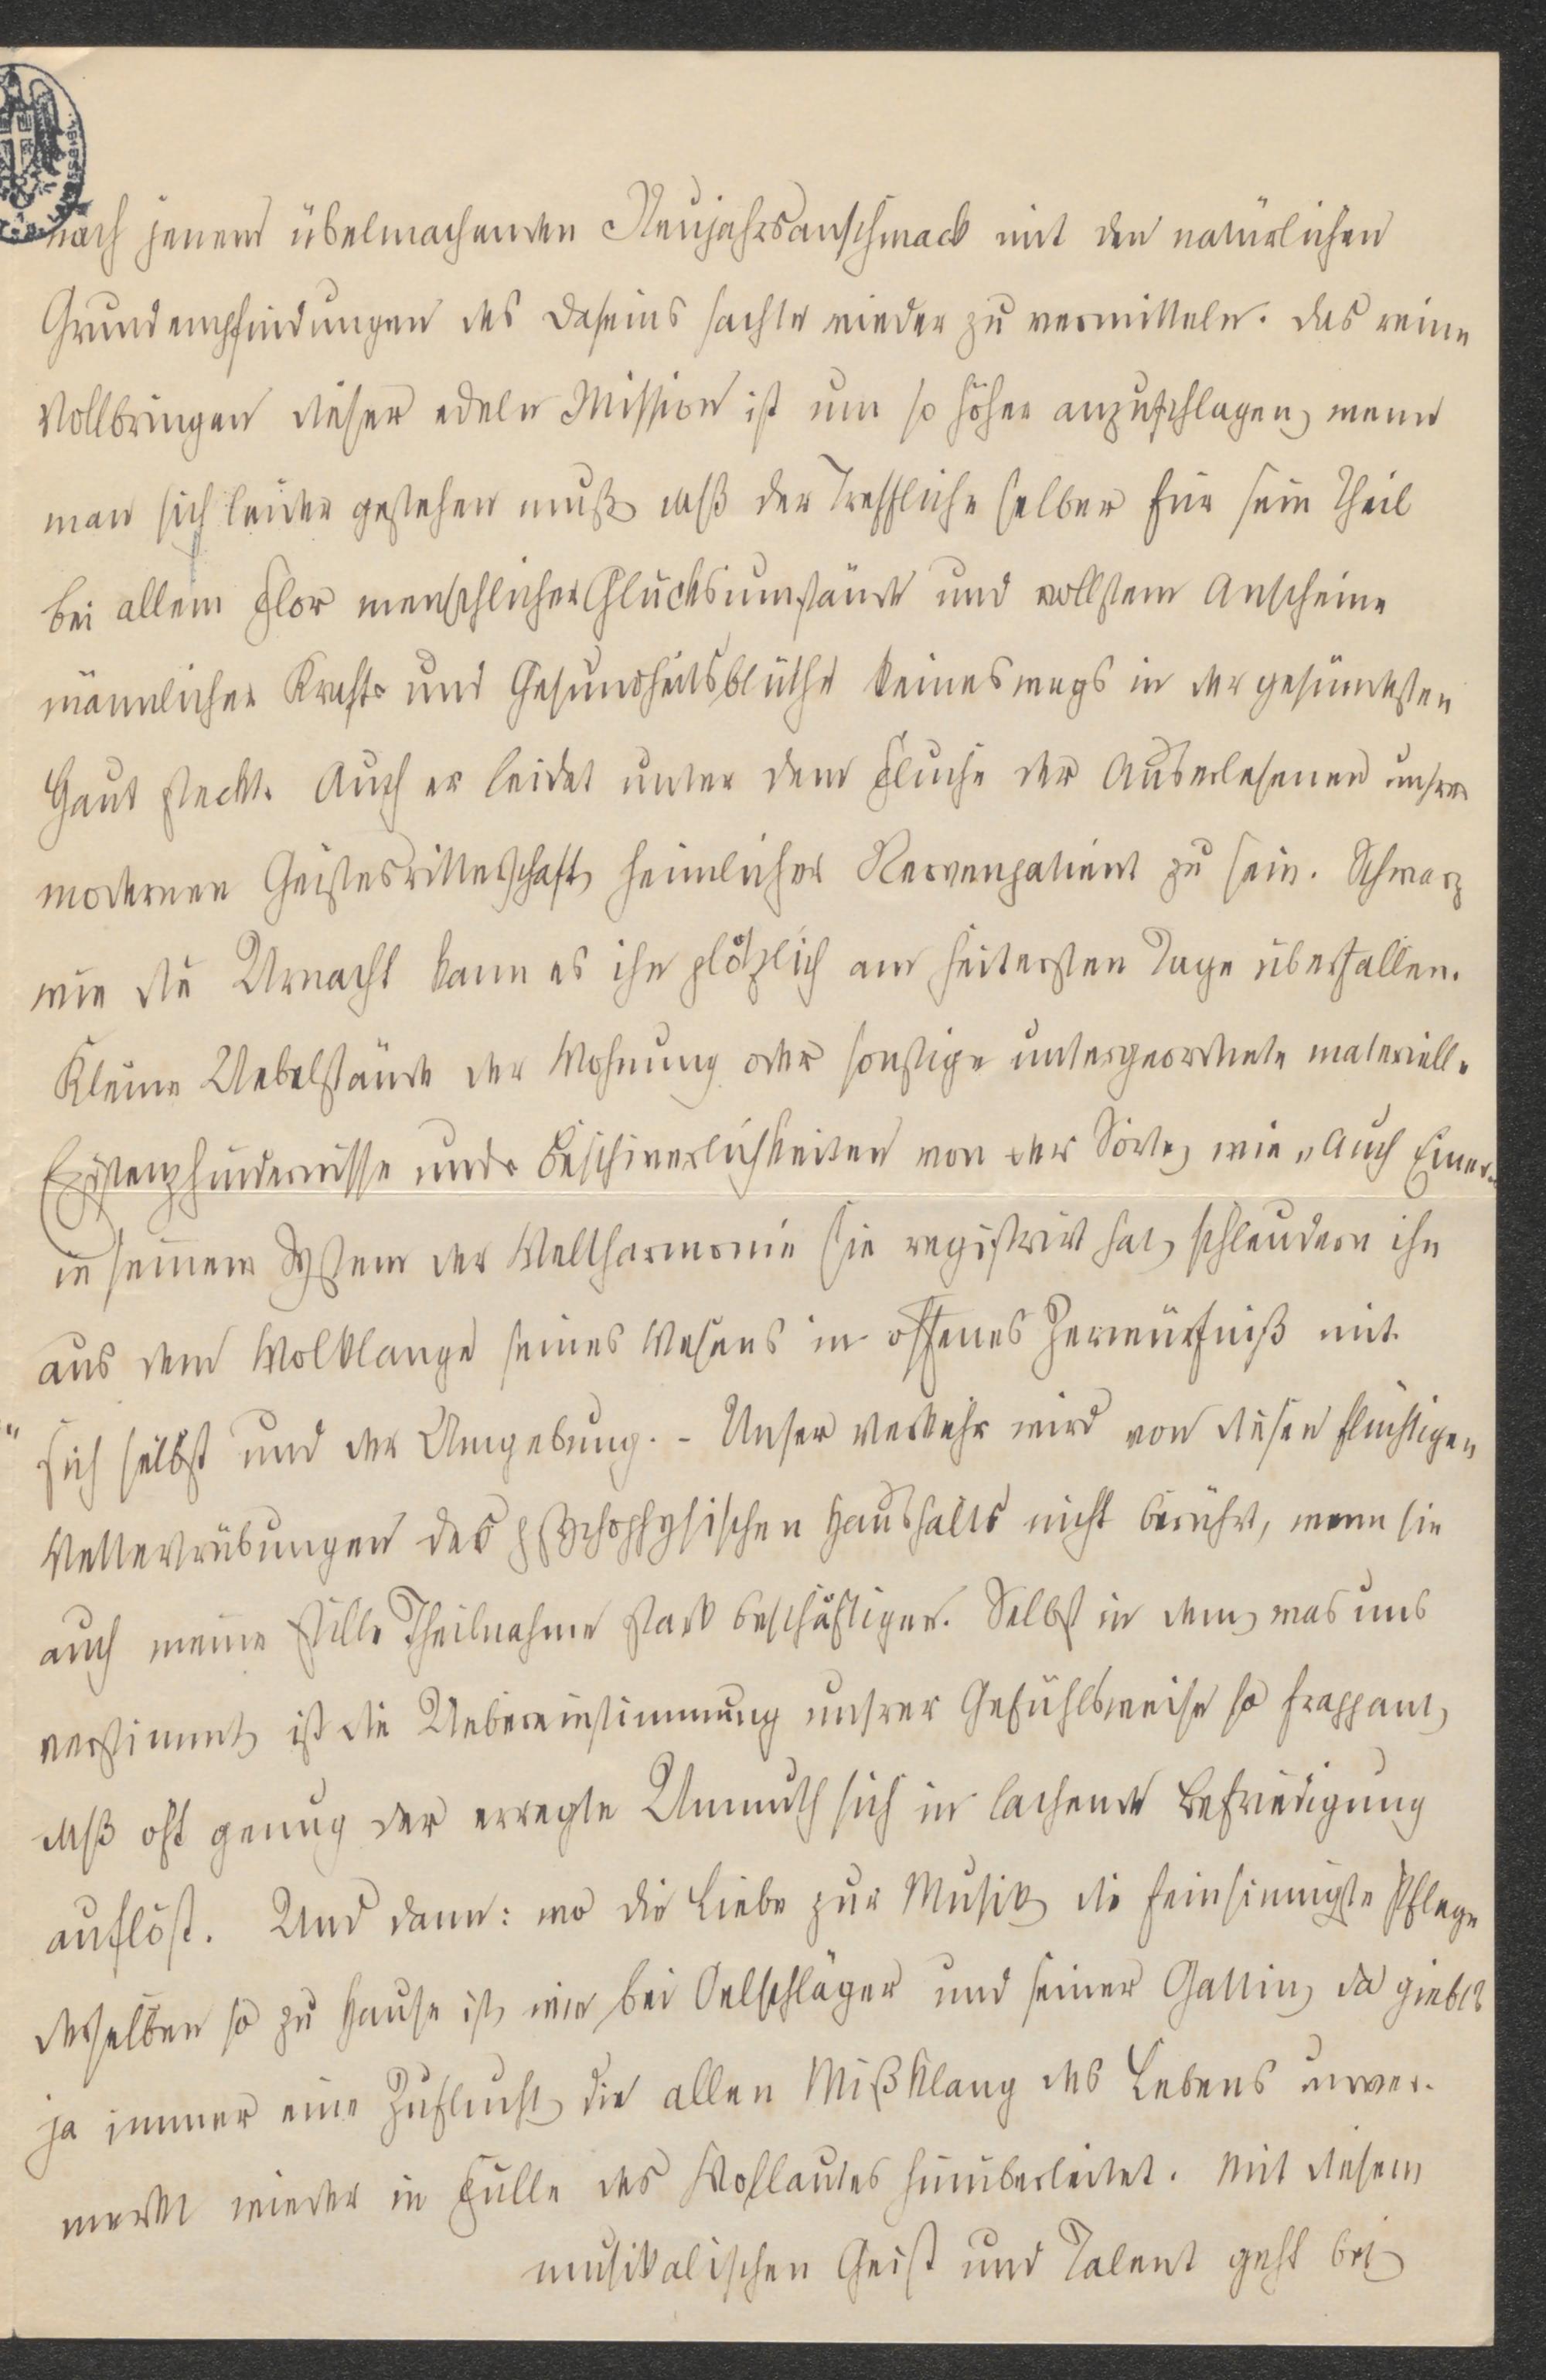 nach jenem übelmachenden Neujahrsanschmack mit den natürlichen
Grundempfindungen des Daseins sachte wieder zu vermitteln. Das reine
Vollbringen dieser edeln Mission ist um so höher anzuschlagen, wenn
man sich leider gestehen muß, daß der Treffliche selber für sein Theil
bei allem Flor menschlicher Glücksumstände und vollstem Anscheine
männlicher Kraft- und Gesundheitsblüthe keineswegs in der gesündesten
Haut steckt. Auch er leidet unter dem Fluche der Auserlesenen unsrer
modernen Geistesritterschaft, heimlicher Nervenpatient zu sein. Schwarz
wie die Urnacht kann es ihn plötzlich am heitersten Tage überfallen.
Kleine Uebelstände der Wohnung oder sonstige untergeordnete materielle
Existenzhindernisse und Beschwerlichkeiten von der Sorte, wie „Auch Einer"
in seinem System der Weltharmonie sie registrirt hat, schleudern ihn
aus dem Wolklange seines Wesens in offenes Zerwürfniß mit
sich selbst und der Umgebung. - Unser Verkehr wird von diesen flüchtigen
Wettertrübungen des psychophysischen Haushalts nicht berührt, wenn sie
auch meine stille Theilnahme stark beschäftigen. Selbst in dem, was uns
verstimmt, ist die Uebereinstimmung unsrer Gefühlsweise so frappant,
daß oft genug der erregte Unmuth sich in lachende Befriedigung
auflöst. Und dann: wo die Liebe zur Musik, die feinsinnigste Pflege
derselben so zu Hause ist, wie bei Oelschläger und seiner Gattin, da giebt's
ja immer eine Zuflucht, die allen Mißklang des Lebens unver-
merkt wieder in Fülle des Wollautes hinüberleitet. Mit diesem
musikalischen Geist und Talent geht bei